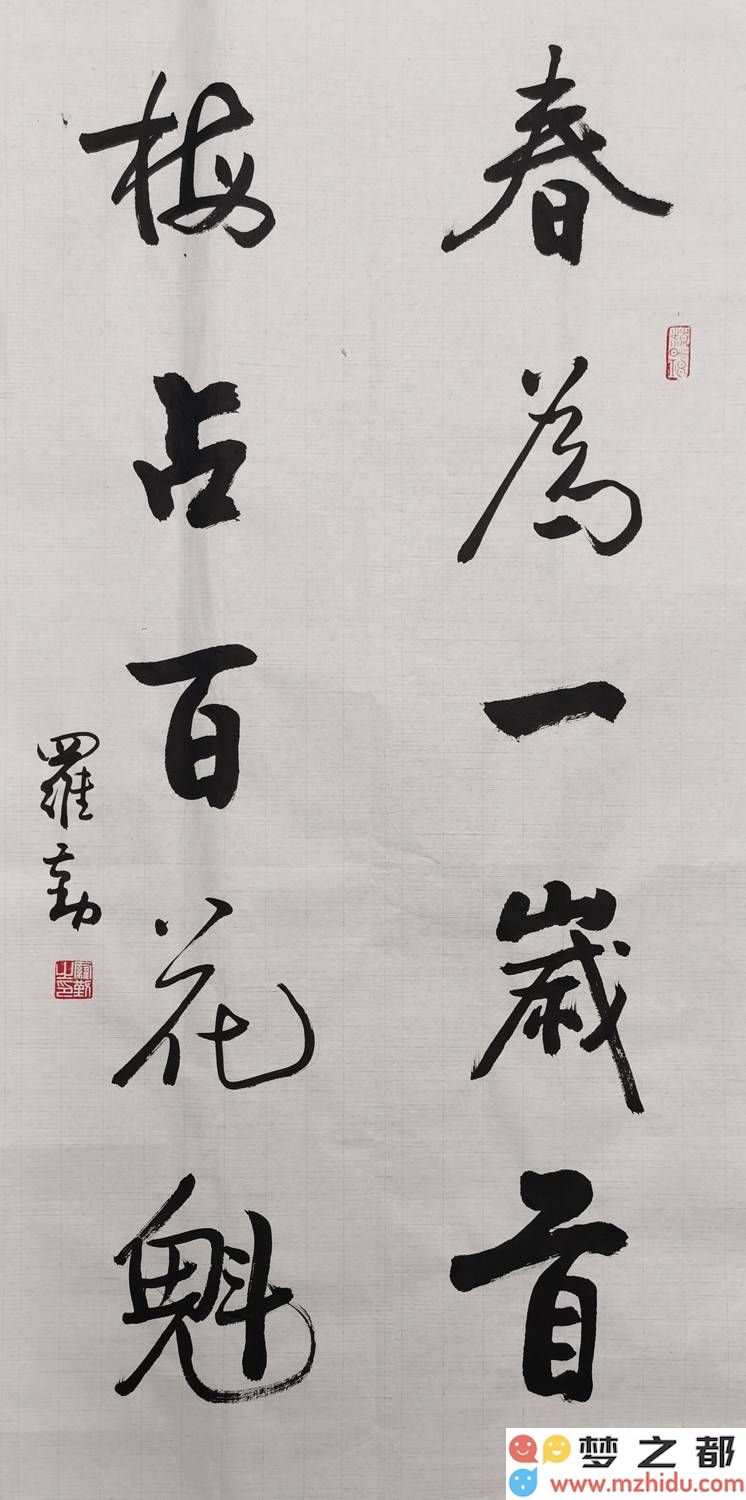 春為一歲首
梅占百花魁
羅勤
羅勤之印
梦之都
www.mzhidu.com